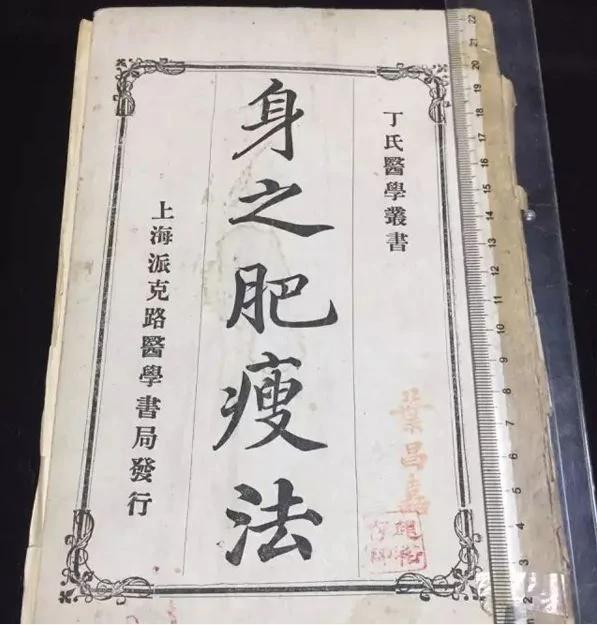 丁氏醫學叢書
身之肥瘦法
上海派克路醫學書局發行
葉昌嘉
22
21
20
19
18
17
16
15
14
13
12
11
10
9
8
7
6
5
4
3
2